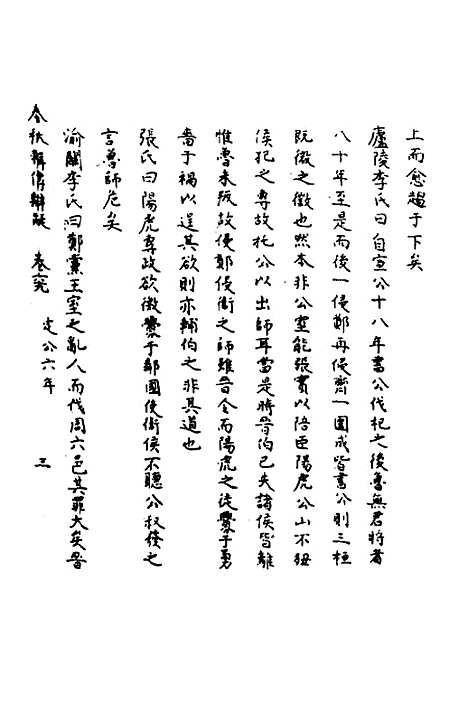 上而愈趨于下矣
廬陵李氏曰自宣公十八年書公伐杞之後魯無君將者
八十年至是而後一侵鄭再侵齊一圍成皆書公則三桓
既微之徵也然本非公室能張實以陪臣陽虎公山不狃
侯犯之專故托公以出師耳當是時晉伯已失諸侯皆離
惟魯未叛故侵鄭侵衛之師雖晉令而陽虎之徒釁于勇
嗇于禍以逞其欲則亦輔伯之非其道也
張氏曰陽虎專政欲徼釁于鄰國使衛侯不聽公叔發之
言魯師危矣
渝關李氏曰鄭黨王室之亂人而伐周六邑其罪大矣晉
春秋輯傳辨疑 卷六 定公六年 三